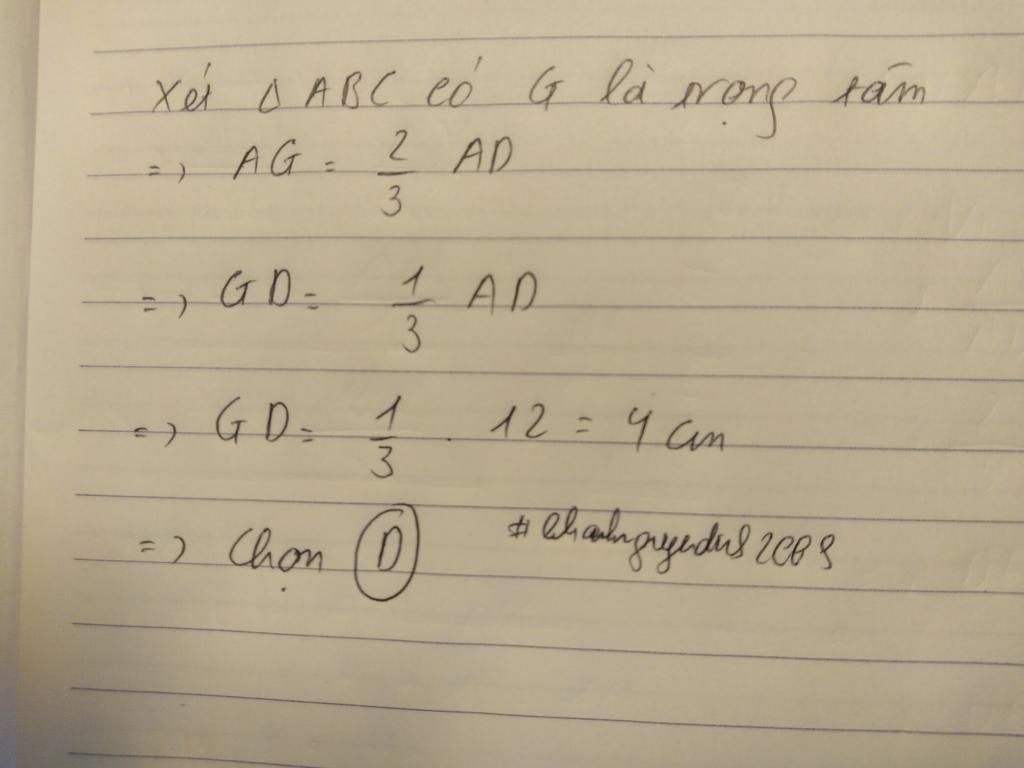 Xét Δ ABC có G là trọng tâm
=> AG = 2/3 AD
=> GD = 1/3 AD
=> GD = 1/3 . 12 = 4 cm
=> Chọn D